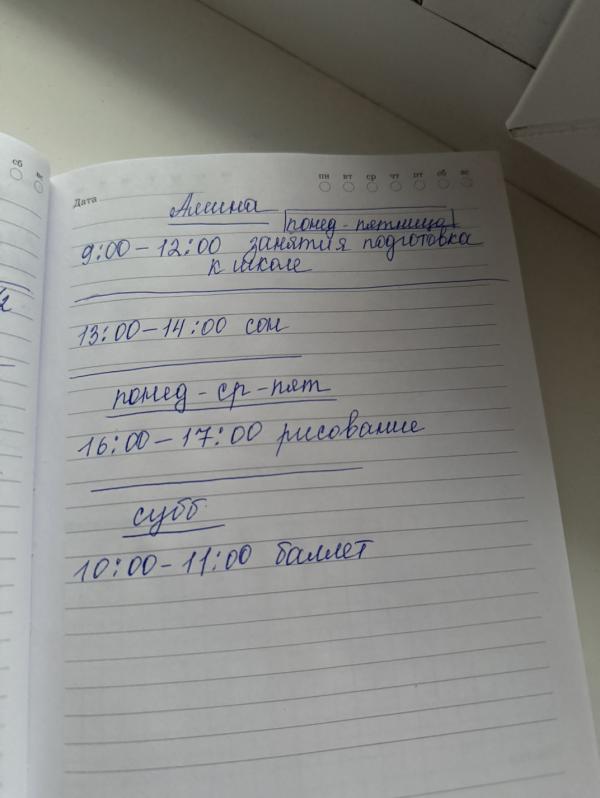 сб вс
пн вт ср чт пт сб вс
Дата
Алина
понед - пятница
9:00 - 12:00 занятия подготовка
к школе
13:00 - 14:00 сон
понед - ср - пят
16:00 - 17:00 рисование
субб
10:00 - 11:00 баллет